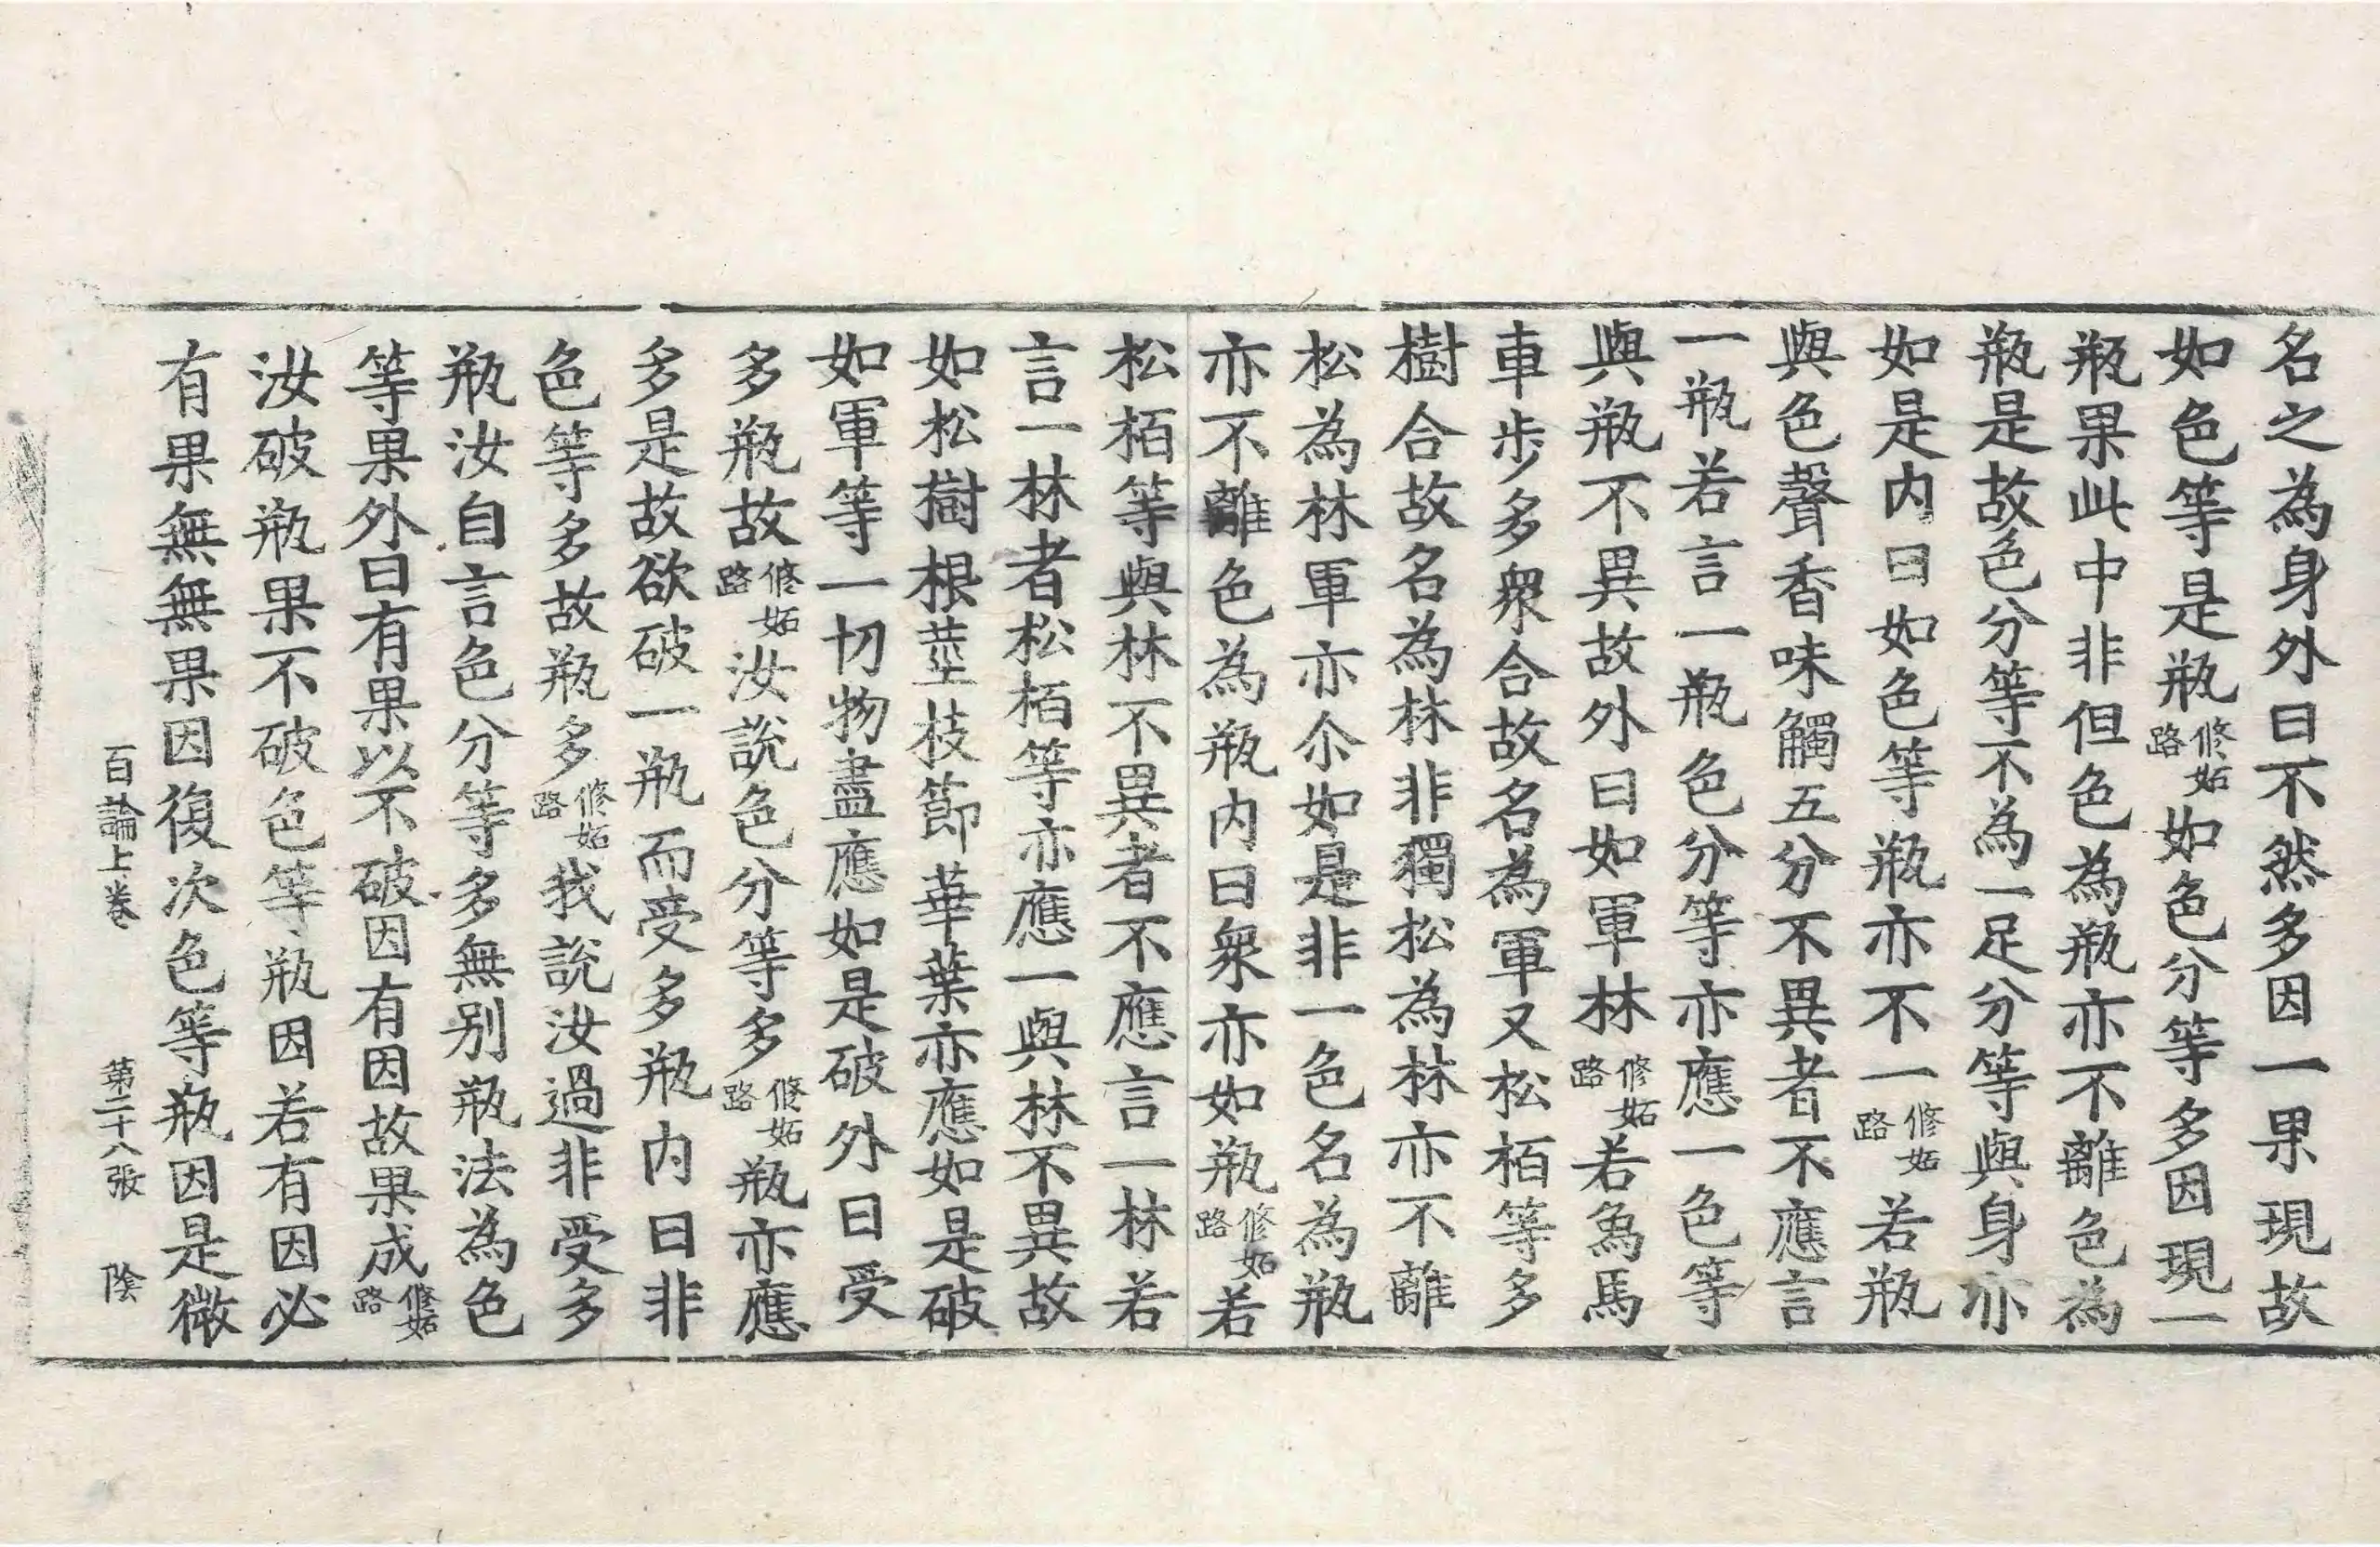 名之為身外曰不然多因一果現故
如色等是瓶修妬路如色分等多因現一
瓶果此中非但色為瓶亦不離色為
瓶是故色分等不為一足分等與身亦
如是内曰如色等瓶亦不一修妬路若瓶
與色聲香味觸五分不異者不應言
一瓶若言一瓶色分等亦應一色等
與瓶不異故外曰如軍林修妬路若𤉡馬
車步多衆合故名為軍又松栢等多
樹合故名為林非獨松為林亦不離
松為林軍亦尒如是非一色名為瓶
亦不離色為瓶内曰衆亦如瓶修妬路若
松栢等與林不異者不應言一林若
言一林者松栢等亦應一與林不異故
如松樹根莖枝節華葉亦應如是破
如軍等一切物盡應如是破外曰受
多瓶故修妬路汝說色分等多修妬路瓶亦應
多是故欲破一瓶而受多瓶内曰非
色等多故瓶多修妬路我說汝過非受多
瓶汝自言色分等多無别瓶法為色
等果外曰有果以不破因有因故果成修妬路
汝破瓶果不破色等瓶因若有因必
有果無無果因復次色等瓶因是微
百論上卷 第二十八張 陰